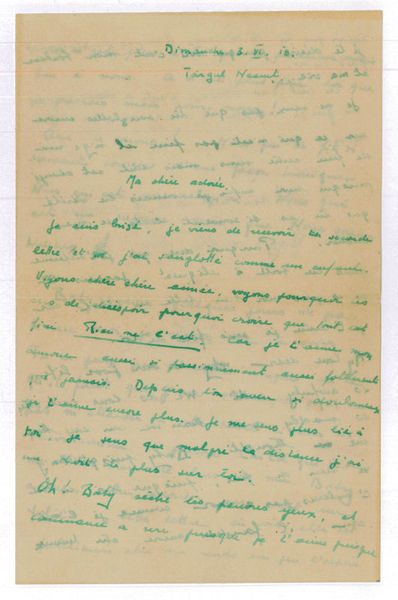 Dimanche 3. VI.
Targul Neamt,
Ma chère adorée,
Je suis brisé, je viens de recevoir ta seconde
lettre et j'ai sanglotté comme un enfant.
Voyons chère chère aimée, voyons pourquoi
de désespoir pourquoi croire que tout est
fini. Rien ne l'est car je t'aime mon
amour aussi si passionnement aussi follement
que jamais. Depuis ton si douloureux
je t'aime encore plus. Je me sens plus lié à
toi, je sens que malgré la distance j'ai
un droit de plus sur toi.
Oh! Baby sèche tes pauvres yeux, et
commence à puisque je t'aime puisque